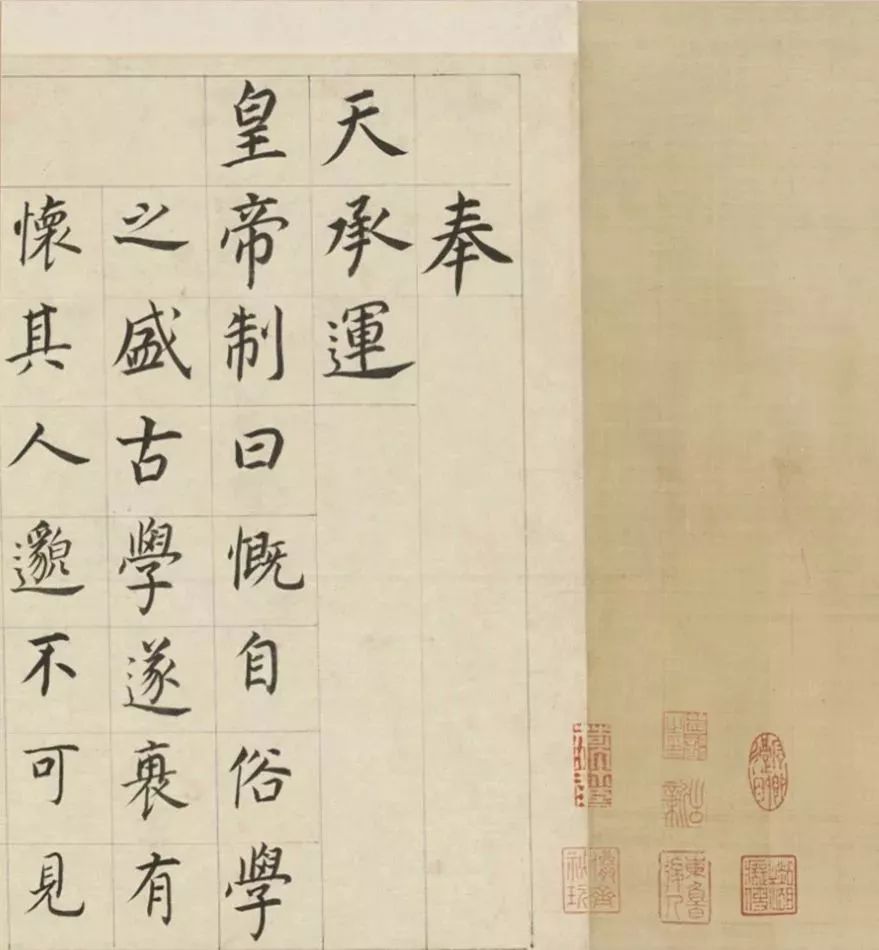 奉
天承運
皇帝制曰慨自俗學
之盛古學遂衰有
懷其人邈不可見